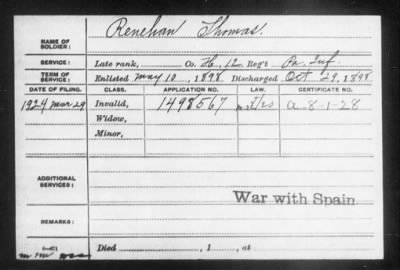 NAME OF SOLDIER: Renehan Thomas.
SERVICE: Late rank, Co. H, 12 Reg't Pa. Inf.
TERM OF SERVICE: Enlisted May 10, 1898 Discharged Oct 29, 1898
DATE OF FILING. CLASS. APPLICATION NO. LAW. CERTIFICATE NO.
1924 Mar 29 Invalid, 1498567 A-8-1-28
Widow,
Minor,
ADDITIONAL SERVICES:
War with Spain
REMARKS:
Died , 1 , at